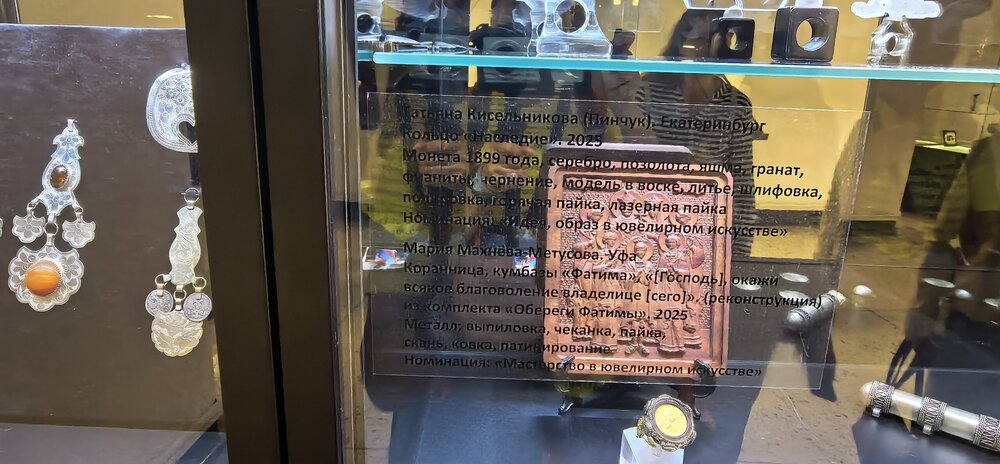 Татьяна Кисельникова (Пинчук). Екатеринбург
Кольцо «Наследие». 2025
Монета 1899 года, серебро, позолота, яшма, гранат,
фианиты; чернение, модель в воске, литье, шлифовка,
полировка, горячая пайка, лазерная пайка
Номинация: «Идея, образ в ювелирном искусстве»
Мария Махнёва-Метусова. Уфа
Коранница, кумбазы «Фатима». «[Господь], окажи
всякое благоволение владелице [сего]». (реконструкция)
из комплекта «Обереги Фатимы». 2025
Металл; выпиловка, чеканка, пайка,
скань, ковка, патинирование
Номинация: «Мастерство в ювелирном искусстве»